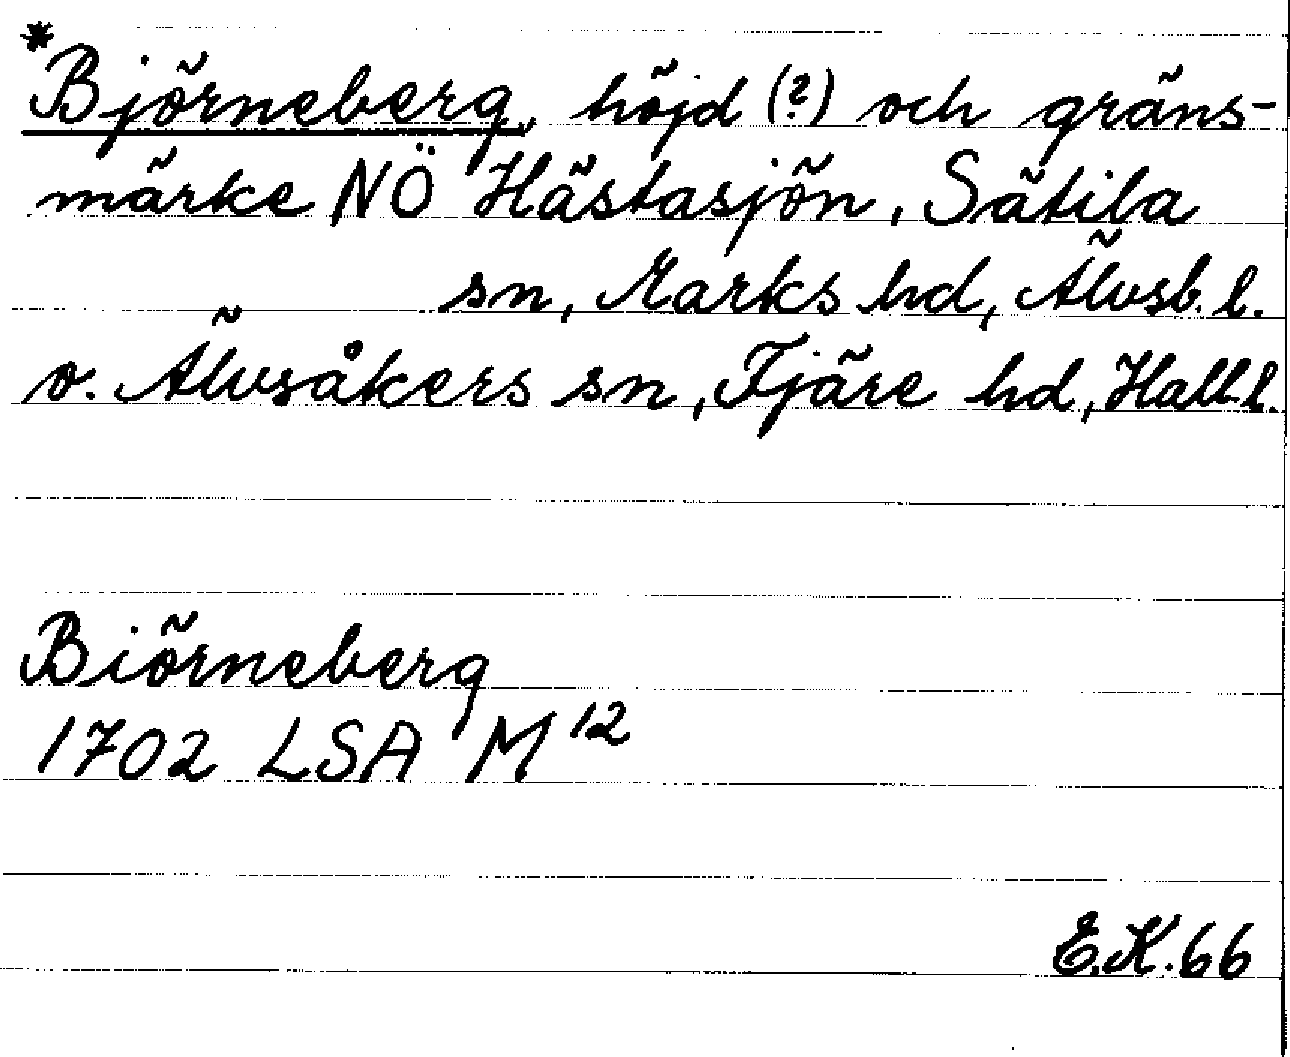 *Björneberg, höjd (?) och gräns-
märke NÖ Hästasjön, Sätila
sn, Marks hd, Älvsb. l.
o. Älvsåkers sn, Fjäre hd, Hall. l.
Biörneberg
1702 LSA M 12
E.K. 66